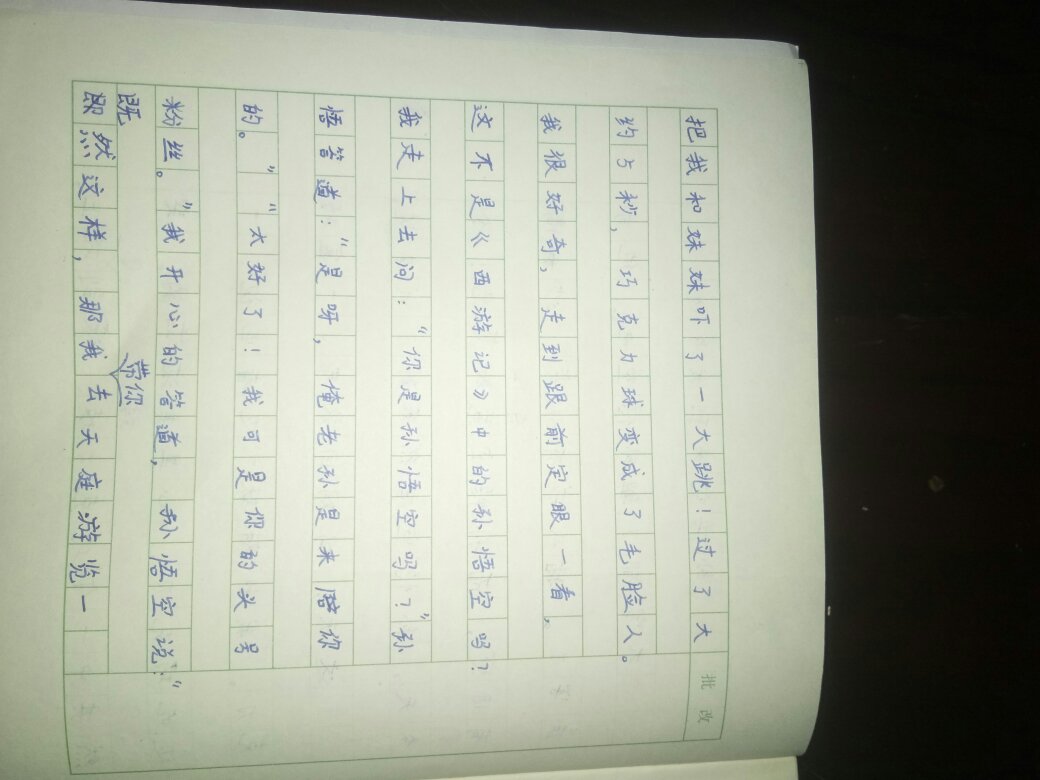 把我和妹妹吓了一大跳！过了大
约5秒，巧克力球变成了毛脸人。
我很好奇，走到跟前定眼一看，
这不是《西游记》中的孙悟空吗？
我走上去问：“你是孙悟空吗？”孙
悟答道：“是呀，俺老孙是来陪你
的。”“太好了！我可是你的头号
粉丝。”我开心的答道，孙悟空说：“
既
即然这样，那我去天庭游览一
带你
批改